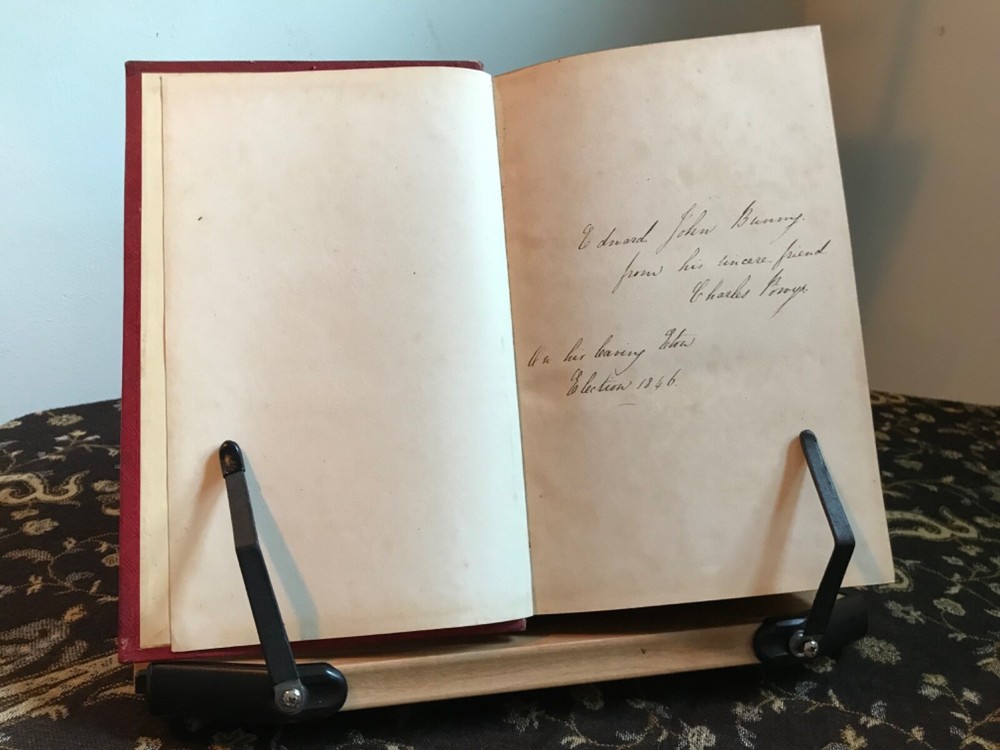 Edward John Bunny.
from his sincere friend
Charles Powys.
On his leaving Eton
Election 1846.